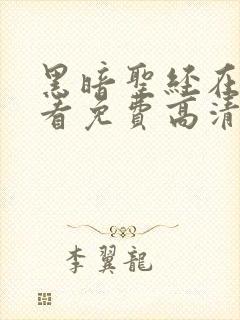 黑暗聖經在
看免費高清
李翼龍